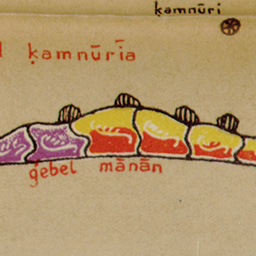 ḳamnūri
ḳamnūrīa
ǵebel mānān